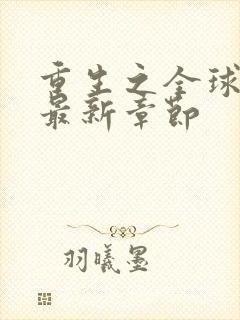 重生之全球
最新章节
羽曦墨